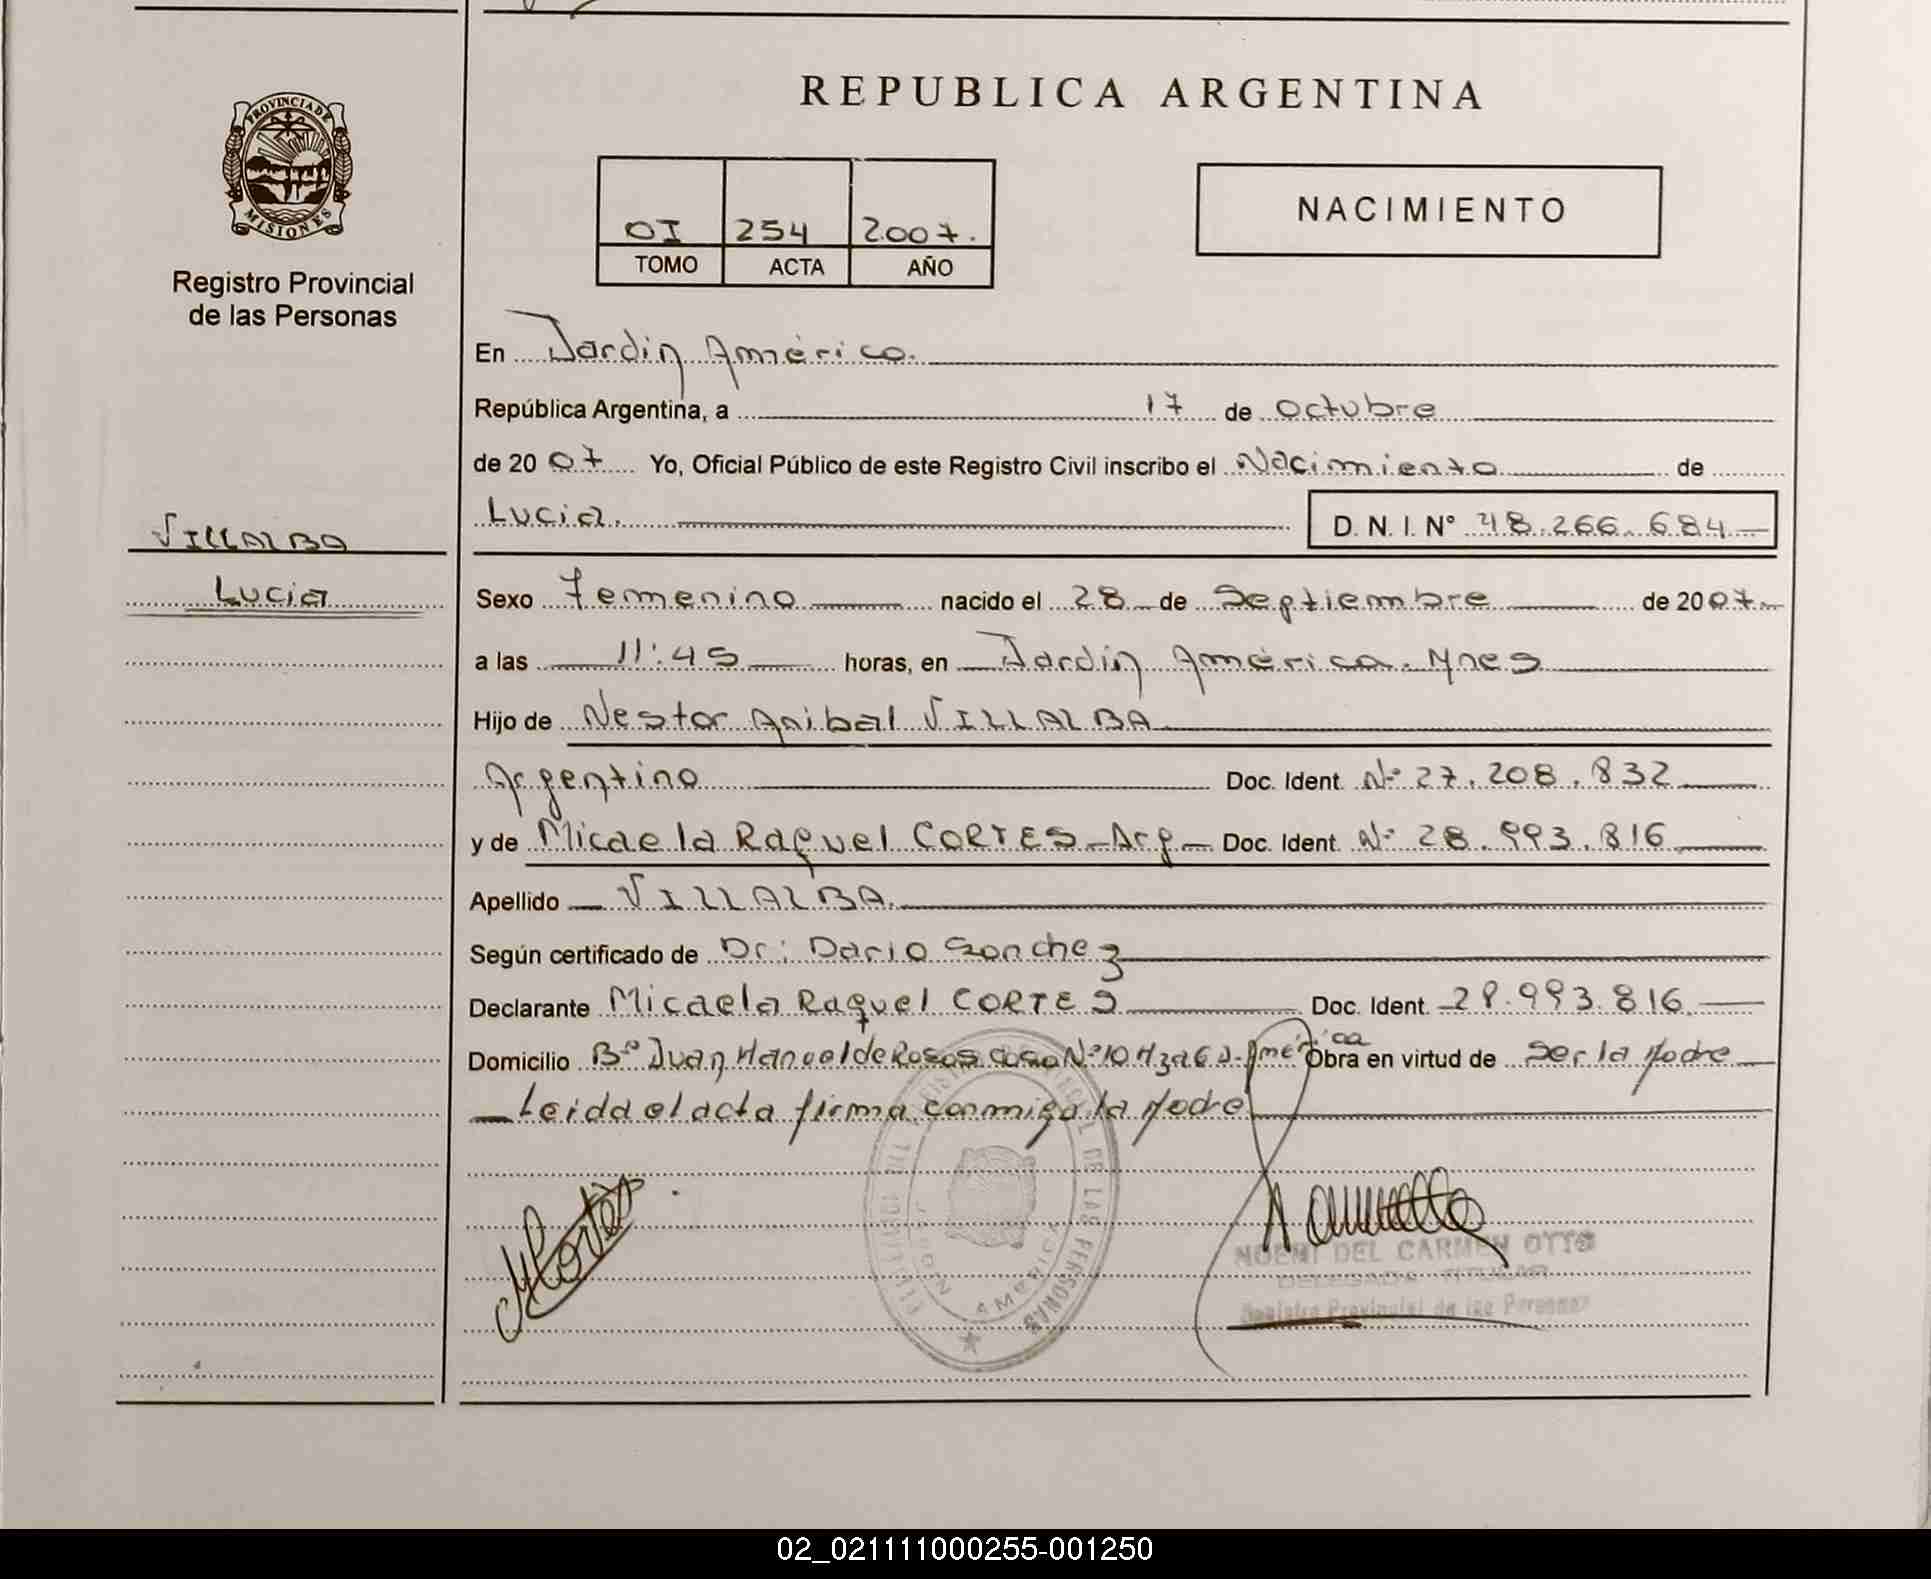 REPUBLICA ARGENTINA
PROVINCIA DE
MISIONES
Registro Provincial
de las Personas
OI 254 2007.
TOMO ACTA AÑO
NACIMIENTO
En Jardin América.
República Argentina, a 17 de octubre
de 20 07 Yo, Oficial Público de este Registro Civil inscribo el Nacimiento de
Lucia. D. N. I. N° 48.266.684
VILLALBA
Lucia
Sexo Femenino nacido el 28 de Septiembre de 2007
a las 11:45 horas, en Jardin América. Mnes
Hijo de Nestor Anibal VILLALBA
Argentino Doc. Ident. Nº 27.208.832
y de Micaela Raquel CORTES - Arg - Doc. Ident. Nº 28.993.816
Apellido VILLALBA.
Según certificado de Dr: Dario Sanchez
Declarante Micaela Raquel CORTES Doc. Ident. 28.993.816.
Domicilio Bº Juan Manuel de Rosas casa Nº 10 Mza 6 J. América Obra en virtud de ser la Madre
Leida el acta firma conmigo la Madre
MCortés
REGISTRO PROVINCIAL DE LAS PERSONAS
JARDIN AMERICA
NOEMI DEL CARMEN OTTO
DELEGADA TITULAR
Registro Provincial de las Personas
02_021111000255-001250